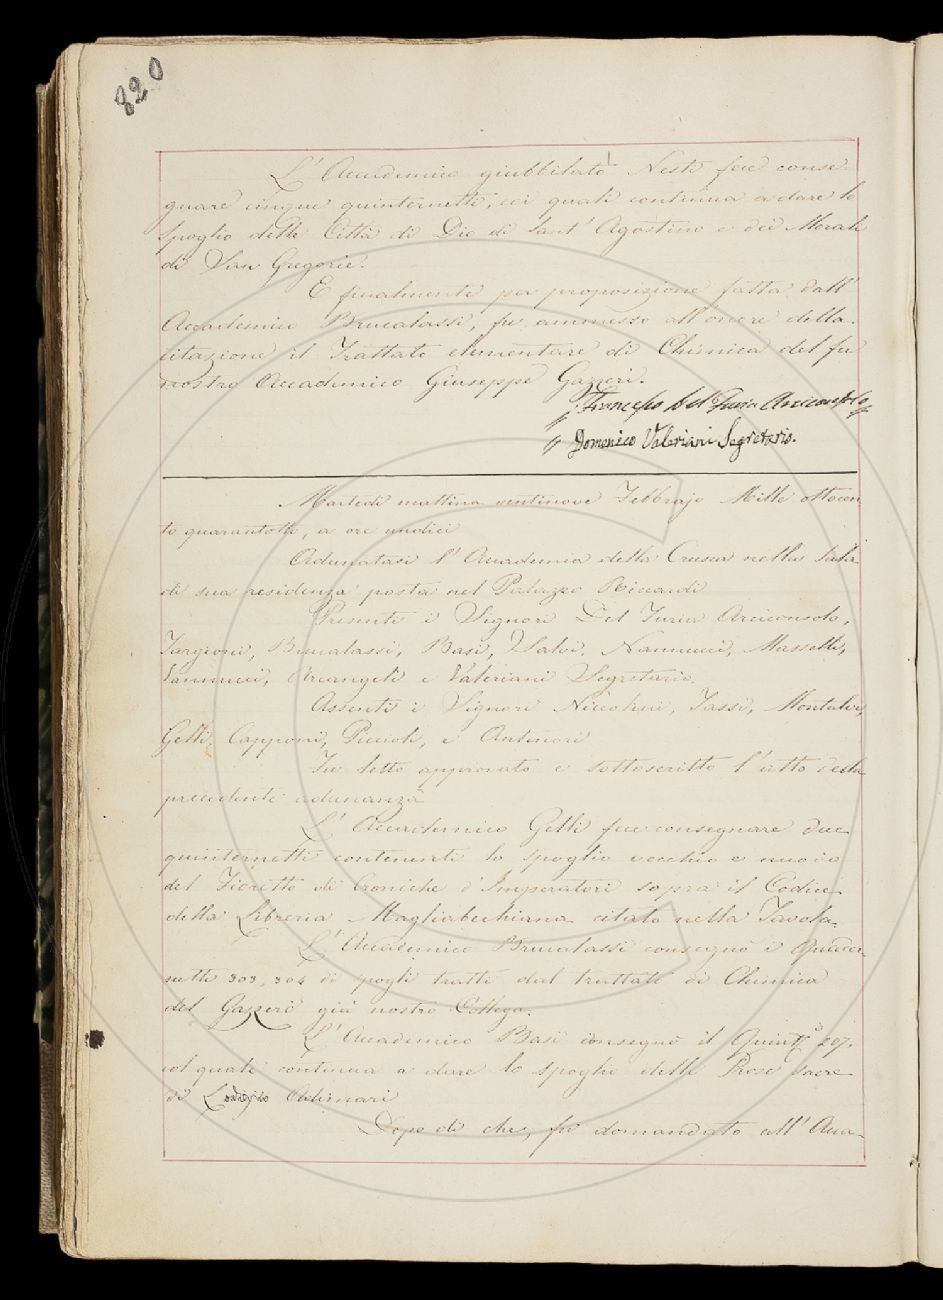 820
L'Accademico giubbilato Nesti fece conse-
gnare cinque quinternetti, coi quali continua a dare lo
spoglio della Città di Dio di Sant'Agostino e dei Morali
di San Gregorio.
E finalmente per proposizione fatta dall'
Accademico Brucalassi, fu ammesso all'onore della
citazione il Trattato elementare di Chimica del fu
nostro Accademico Giuseppe Gazzeri.
Francesco Del Furia Arciconsolo
Domenico Valeriani Segretario.
Martedì mattina ventinove Febbrajo Mille ottocen
to quarantotto, a ore undici
Adunatasi l'Accademia della Crusca nella Sala
di sua residenza posta nel Palazzo Riccardi
Presenti i Signori Del Furia Arciconsolo,
Targioni, Brucalassi, Basi, Salvi, Nannucci, Masselli,
Vannucci, Arcangeli e Valeriani Segretario.
Assenti i Signori Niccolini, Tassi, Montalvi,
Gelli, Capponi, Piccioli, e Antinori
Fu letto approvato e sottoscritto l'atto della
precedente adunanza
L'Accademico Gelli fece consegnare due
quinternetti contenenti lo spoglio vecchio e nuovo
del Fioretto di Croniche d'Imperatori sopra il Codice
della Libreria Magliabechiana citato nella Tavola.
L'Accademico Brucalassi consegnò i Quader-
netti 303, 304 di spogli tratti dal trattato di Chimica
del Gazzeri già nostro Collega.
L'Accademico Basi consegnò il Quint.º 207,
col quale continua a dare lo spoglio delle Prose Sacre
di Lodovico Adimari
Dopo di che, fu domandato all'Acca-